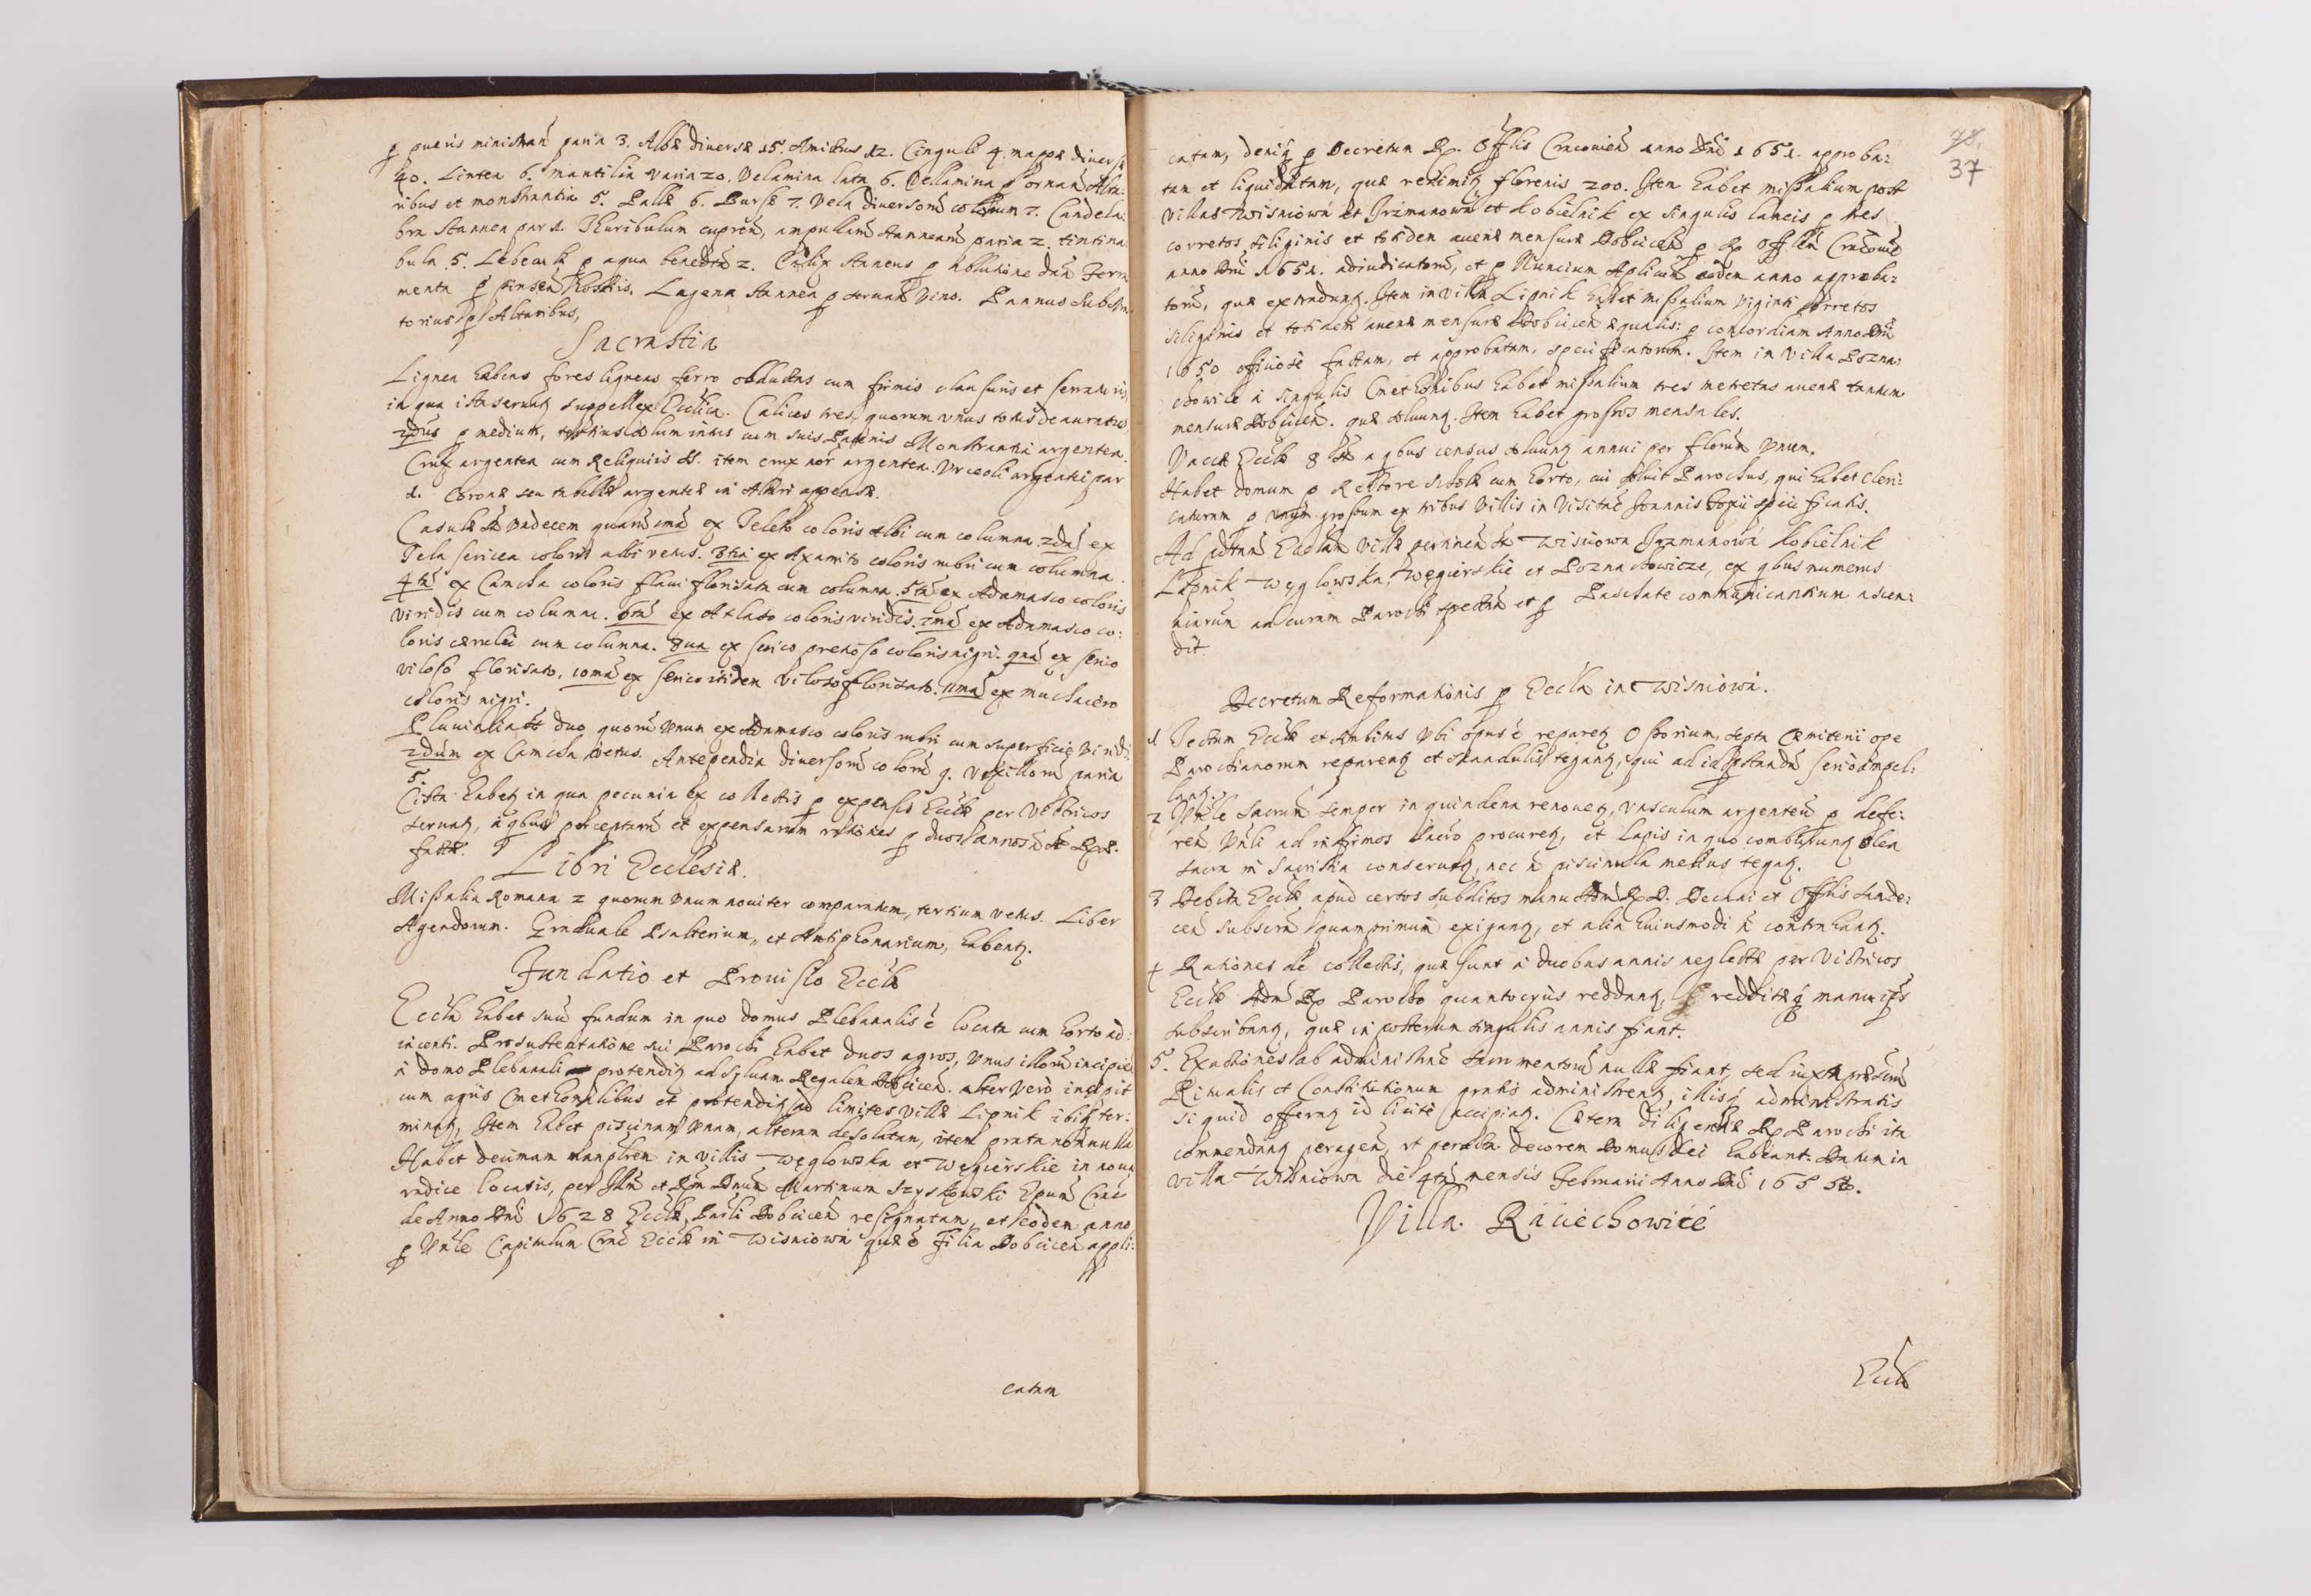 p pueris ministran̄ paria 3. Albæ diversæ 15. Amictus 12. Cinguli 4. mappæ diversæ
40. Lintea 6. mantilia varia 20. Velamina lata 6. Vellamina p ornan̄ Alta:
ribus et monstrantia 5. Pallæ 6. Bursæ 7. Vela diversorū colorum 7. Candela:
bra stannea par 1. Thuribulum cupreū, ampullarū stannearū paria 2. tintina:
bula 5. Lebetes p aqua benedta 2. Calix stanneus p ablutione Ferra
menta p hostiis. Lagena stannea p vino. Pannus
torius p Altaribus,
Sacrastia
Lignea habens fores ligneas ferro obductas cum firmis clausuris et serraturis,
in qua ista seruat suppellex Ecclīca. Calices tres, quorum vnus totus deauratus,
2dus p medium, tertius intus cum suis Patenis Monstrantia argentea.
Crux argentea cum Reliquiis SS. item crux nōr argentea. Vrceoli argentei par
1. Coronæ seu tabellæ argenteæ in Altari appensæ.
Casulæ st vndecem quarū 1ma ex Teleta coloris albi cum columna 2da ex
Tela sericea coloris albi vetus. 3tia ex Axamito coloris rubri cum columna.
4ta ex Camcha coloris flaui florisata cum columna. 5ta ex Adamasco coloris
viridis cum columna. 6ta ex Atlasо coloris viridis. 7ma ex Adamasco co:
loris cærulei cum columna. 8ua ex serico pretioso coloris nigri. 9na ex serico
viloso florisato, 10ma ex serico itidem viloso florisato. 11ma ex muchaiero
coloris nigri.
Pluuialia st duo quorū vnum ex Adamasco coloris rubri cum superficie viridi.
2dum ex Camcha vetus. Antependia diversorū colorū 9. Vexillorū paria
5.
Cista habetʒ in qua pecunia ex collectis p expensis Ecclæ per Vitricos
seruatʒ, a qbus perceptarū et expensarum rationes p duos annos n̄ st Rptæ.
factæ.
Libri Ecclesiæ.
Missalia Romana 2 quorum vnum nouiter comparatum, tertium vetus. Liber
Agendorum. Graduale Psalterium, et Antiphonarium, habentʒ.
Fundatio et Prouisio Ecclæ
Eccla habet suū fundum in quo domus Plebanalis ē locata cum horto ad:
iacenti. Pro sustentatione sui Parochi habet duos agros, Vnus illorū incipit
a domo Plebanali protenditʒ ad syluam Regalem Dobcicen̄. alter vero incipit
cum agris Cmethonalibus et protenditʒ ad limites villæ Lipnik ibiqʒ ter:
minatʒ, Item habet piscinam vnam, alteram desolatam, item prata nonnulla
Habet decimam manplrem in villis Węglowska et Węgierskie in noua
radice locatis, per Illm̄ et Rm̄ Dnūm Martinum Szyszkowski Epum̄ Crac̄
de Anno Dn̄i 1628 Ecclæ, Dobcicen̄ resignatam, et eodem anno
p Vnle Capitulum Crac̄ Ecclæ in Wisniowa quæ ē filia Dobcicen̄ appli:
catam
78.
37
catam, deniqʒ p Decretum Rp. Offlis Cracouien̄ anno Dn̄i 1651. approba:
tam et liquidatam, quæ redimitʒ florenis 200. Item habet missalium post
villas Wisniowa et Irzmanowa et Kobielnik ex singulis laneis p tres
corretos siliginis et totidem auenæ mensuræ Dobcicen̄ p Rp Offlem Cracouien̄
anno Dn̄i 1651. adiudicatorū, et p Nuncium Aplicum eodem anno approba:
torū, quæ extradunt. Item in villa Lipnik habet missalium viginti corretos
siliginis et totidem auenæ mensuræ Dobcicen̄ æqualis: p concordiam Anno Dn̄i
1650 officiose factam, et approbatam, specificatorum. Item in villa Pozna:
chowice a singulis Cmethonibus habet missalium tres metretas auenæ tantum
mensuræ Dobcicen̄. quæ soluunt. Item habet grossos mensales.
Vaccæ Ecclæ 8 st a qbus census soluunt annui per florenū vnum.
Habet domum p Rectore scholæ cum horto, cui soluit Parochus, qui habet Cleri:
caturam p vnum grossum ex tribus villis in Visitac̄ Joannis Foxii specificatis.
Ad istam Ecclam villæ pertinen̄ st Wisniowa Irzmanowa Kobielnik
Lipnik Węglowska, Węgierskie et Poznachowicze, ex qbus numerus
aiarum ad curam Parochi spectan̄ et p Paschate communicantium ascen:
dit.
Decretum Reformationis p Eccla in Wisniowa.
1 Tectum Ecclæ et Ambitus vbi opus ē reparetʒ Ossorium, septa Cæmiterii ope
Parochianorum reparentʒ et skandulis tegantʒ, qui ad id præstandū serio impel:
lantʒ.
2 Vnble Sacrum semper in quindena renouetʒ, vasculum argenteū p defe:
ren̄ Vnbli ad infirmos Sacro procuretʒ, et lapis in quo combu olea
sacra in Sacristia conseruetʒ, nec n̄ piscinula melius tegatʒ.
3 Debita Ecclæ apud certos subditos manu Adm̄ R.D. Decani et Offlis Sande:
cen̄ subscrip quamprimum exigantʒ, et alia huiusmodi n̄ contrahantʒ.
4 Rationes de collectis, quæ sunt a duobus annis neglectæ per Vitricos
Ecclæ Adm̄ Rp Parocho quantocyus reddantʒ, redditæqʒ manu ips
subscribantʒ, quæ in posterum singulis annis fiant.
5. Exactiones ab administrac̄ Sacramentorū nullæ fiant, sed iuxta
Ritualis et Constitutionum gratis administrentʒ, illisqʒ administratis
si quid offertʒ id licite accipiatʒ. Cætera diligentiæ Rp Parochi ita
commendantʒ peragen̄, vt peracta decorem Domus Dei habeant. Datum in
villa Wisniowa die 4ta mensis Februarii Anno Dn̄i 1655.
Villa. Raciechowice
Ecclæ